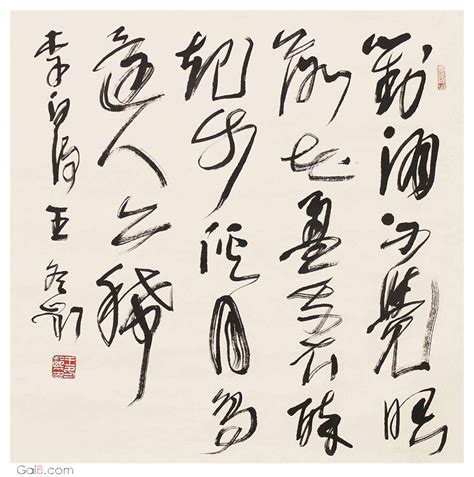 對酒不覺暝
落花盈我衣醉
起步溪月鳥
還人亦稀
李白詩王冬齡
Gai8.com